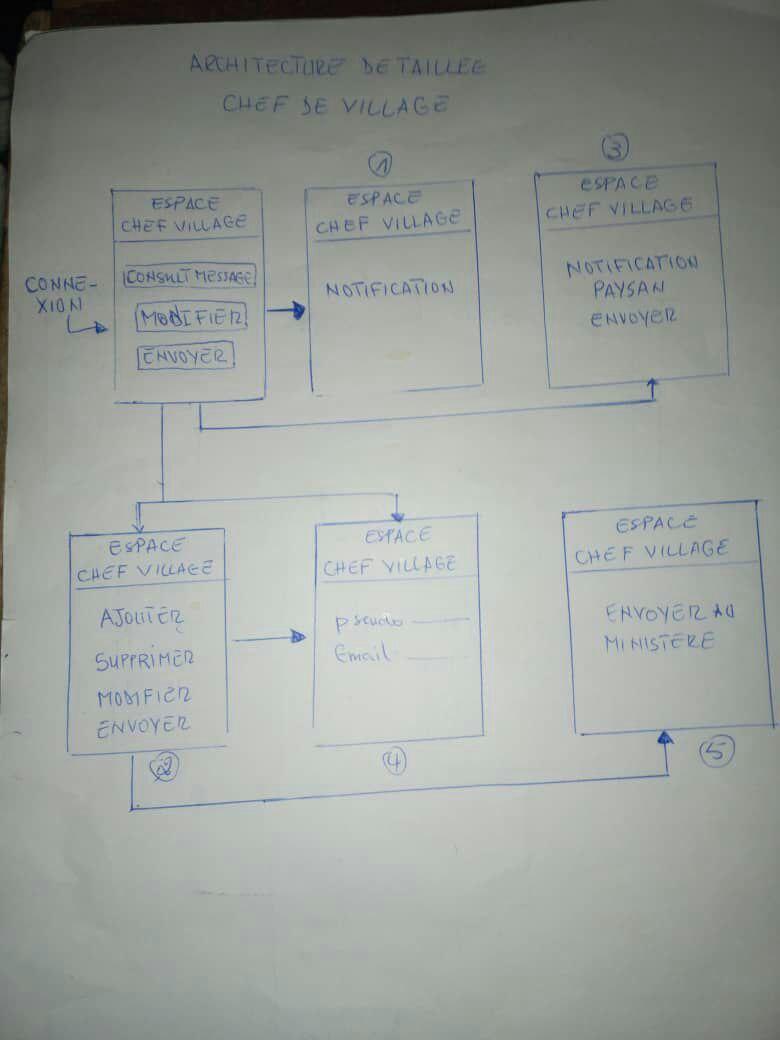 ARCHITECTURE DETAILLEE
CHEF DE VILLAGE
CONNE-
XION
ESPACE
CHEF VILLAGE
CONSULT MESSAGE
MODIFIER
ENVOYER
1
ESPACE
CHEF VILLAGE
NOTIFICATION
3
ESPACE
CHEF VILLAGE
NOTIFICATION
PAYSAN
ENVOYER
ESPACE
CHEF VILLAGE
AJOUTER
SUPPRIMER
MODIFIER
ENVOYER
2
ESPACE
CHEF VILLAGE
pseudo
Email
4
ESPACE
CHEF VILLAGE
ENVOYER AU
MINISTERE
5